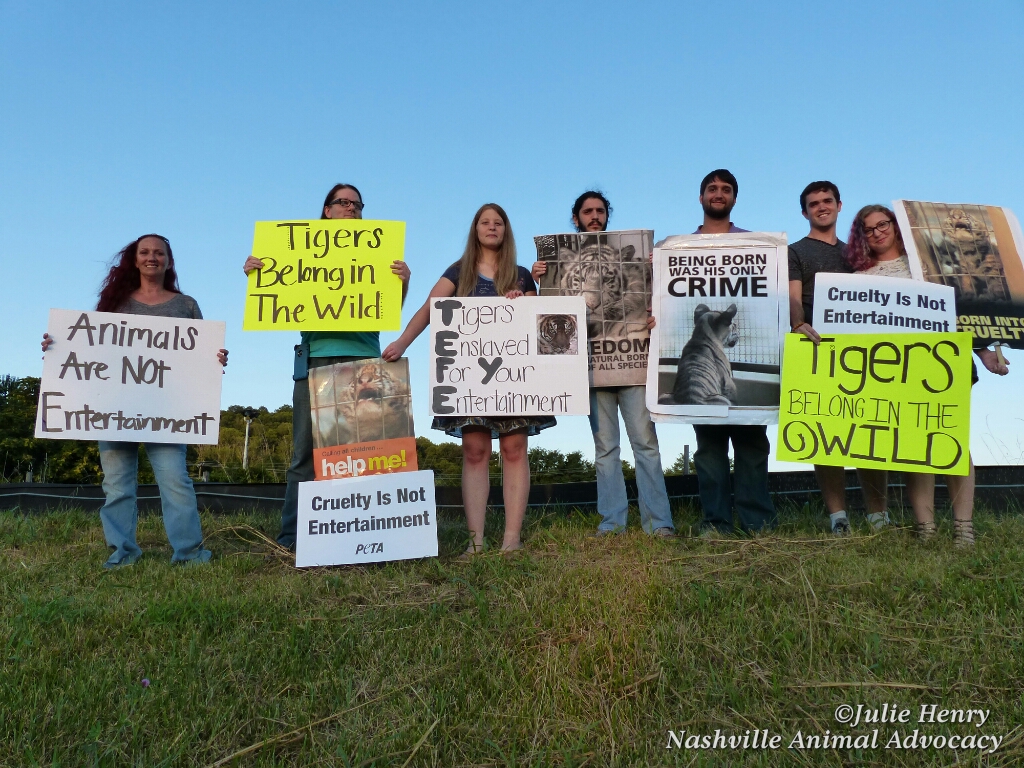 Animals
Are Not
Entertainment
Tigers
Belong in
The Wild
help me!
Cruelty Is Not
Entertainment
PETA
Tigers
Enslaved
For Your
Entertainment
EEDOM
NATURAL BORN
OF ALL SPECIES
BEING BORN
WAS HIS ONLY
CRIME
Cruelty Is Not
Entertainment
Tigers
BELONG IN THE
WILD
BORN INTO
CRUELTY
©Julie Henry
Nashville Animal Advocacy